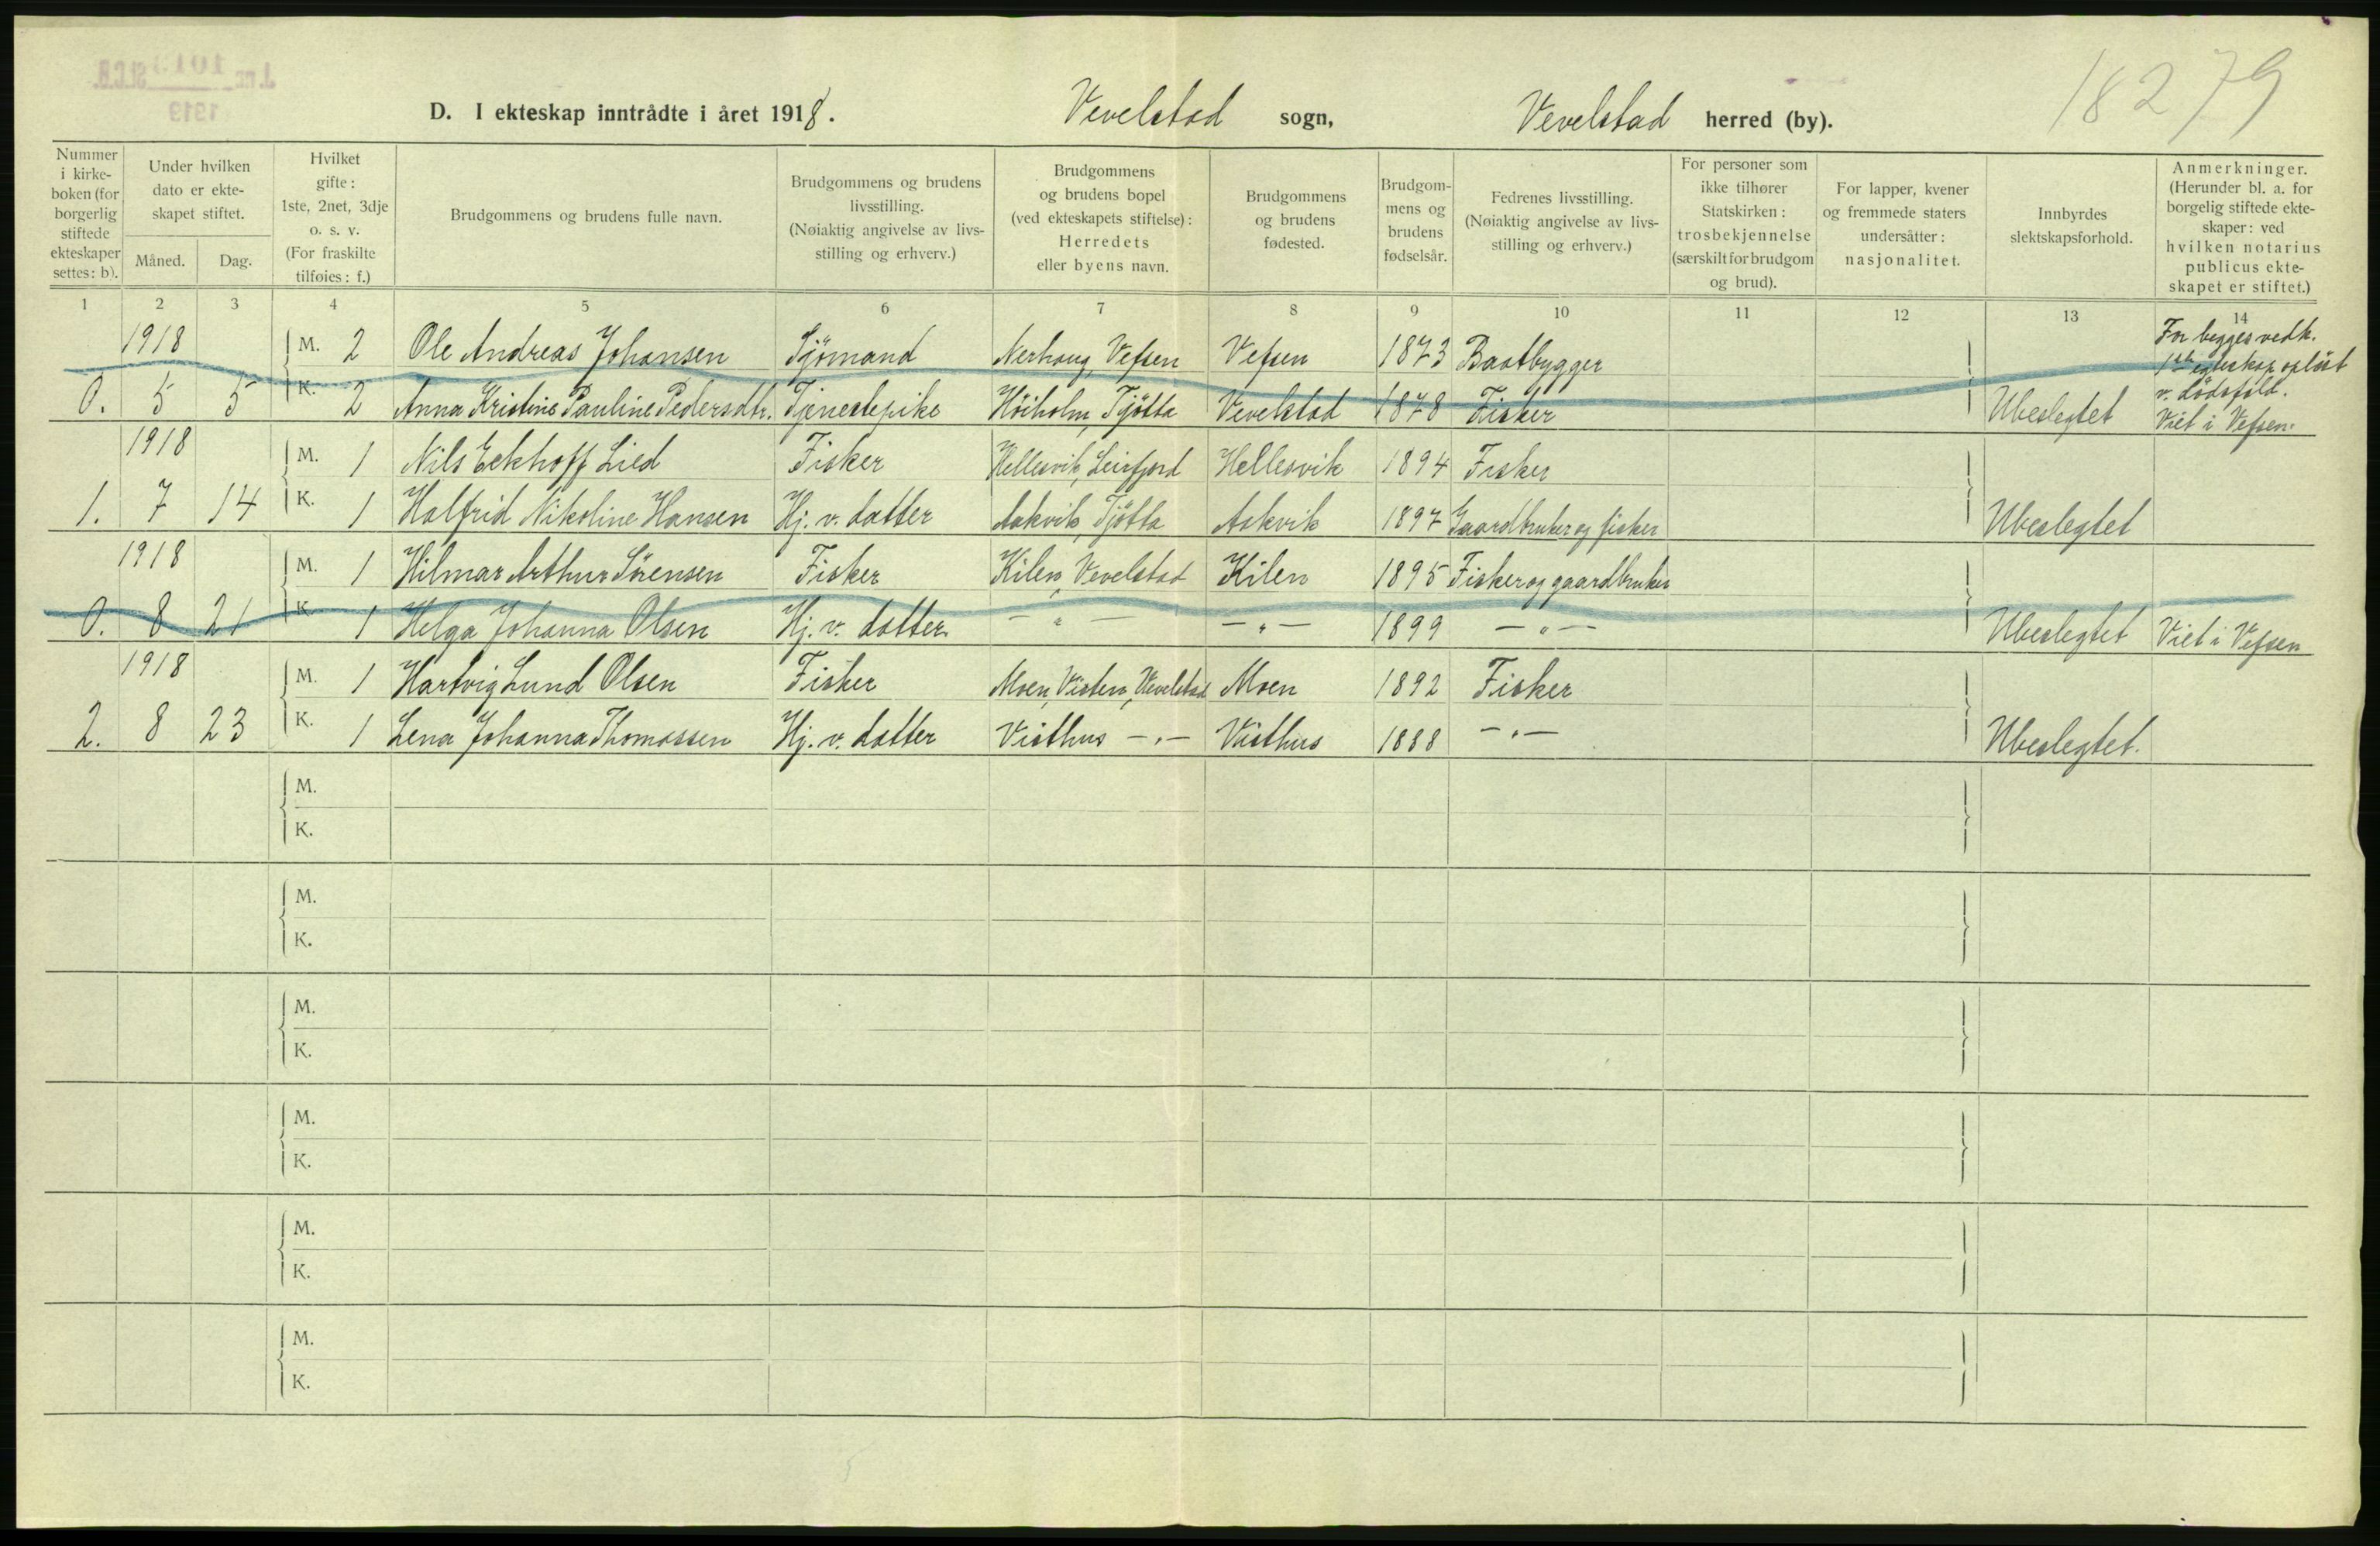 18279
D. I ekteskap inntrådte i året 1918. Vevelstad sogn, Vevelstad herred (by).
Nummer i kirke-boken (for borgerlig stiftede ekteskaper settes: b).
Under hvilken dato er ekte-skapet stiftet.
Måned. Dag.
Hvilket gifte: 1ste, 2net, 3dje o. s. v. (For fraskilte tilføies: f.)
Brudgommens og brudens fulle navn.
Brudgommens og brudens livsstilling. (Nøiaktig angivelse av livs-stilling og erhverv.)
Brudgommens og brudens bopel (ved ekteskapets stiftelse): Herredets eller byens navn.
Brudgommens og brudens fødested.
Brudgom-mens og brudens fødselsår.
Fedrenes livsstilling. (Nøiaktig angivelse av livs-stilling og erhverv.)
For personer som ikke tilhører Statskirken: trosbekjennelse (særskilt for brudgom og brud).
For lapper, kvener og fremmede staters undersåtter: nasjonalitet.
Innbyrdes slektskapsforhold.
Anmerkninger. (Herunder bl. a. for borgelig stiftede ekte-skaper: ved hvilken notarius publicus ekte-skapet er stiftet.)
1 2 3 4 5 6 7 8 9 10 11 12 13 14
1918 M. 2 Ole Andreas Johansen Sjømand Nerhaug, Vefsen Vefsen 1873 Baatbygger For begges vedk. 1ste egteskap opløst
0. 5 5 K. 2 Anna Kristine Pauline Pedersdtr. Tjenestepike Høiholm, Tjøtta Vevelstad 1878 Fisker Ubeslegtet v. dødsfald. Viet i Vefsen.
1918 M. 1 Nils Eckhoff Lied Fisker Hellesvik, Leirfjord Hellesvik 1894 Fisker
1. 7 14 K. 1 Halfrid Nikoline Hansen Hj. v. datter Aakvik, Tjøtta Aakvik 1897 Gaardbruker og fisker Ubeslegtet
1918 M. 1 Hilmar Arthur Sørensen Fisker Kilen, Vevelstad Kilen 1895 Fisker og gaardbruker
0. 8 21 K. 1 Helga Johanna Olsen Hj. v. datter — " — — " — 1899 — " — Ubeslegtet Viet i Vefsen
1918 M. 1 Hartvig Lund Olsen Fisker Moen, Visten, Vevelstad Moen 1892 Fisker
2. 8 23 K. 1 Lena Johanna Thomassen Hj. v. datter Visthus — " — Visthus 1888 — " — Ubeslegtet.
M.
K.
M.
K.
M.
K.
M.
K.
M.
K.
M.
K.